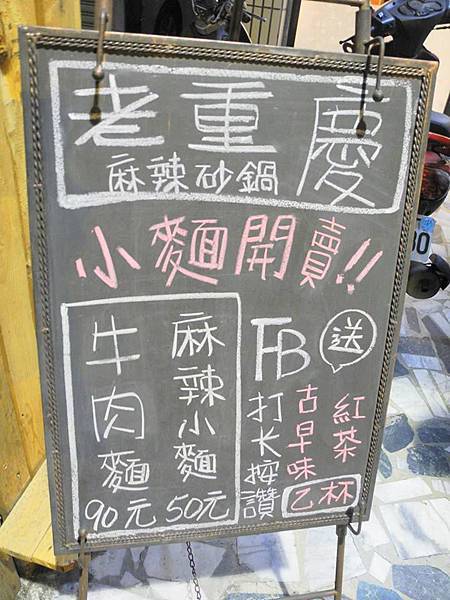 老重慶
麻辣砂鍋
小麵開賣!!
麻辣小麵
50元
牛肉麵
90元
FB
打卡按讚
送
古早味
紅茶
乙杯